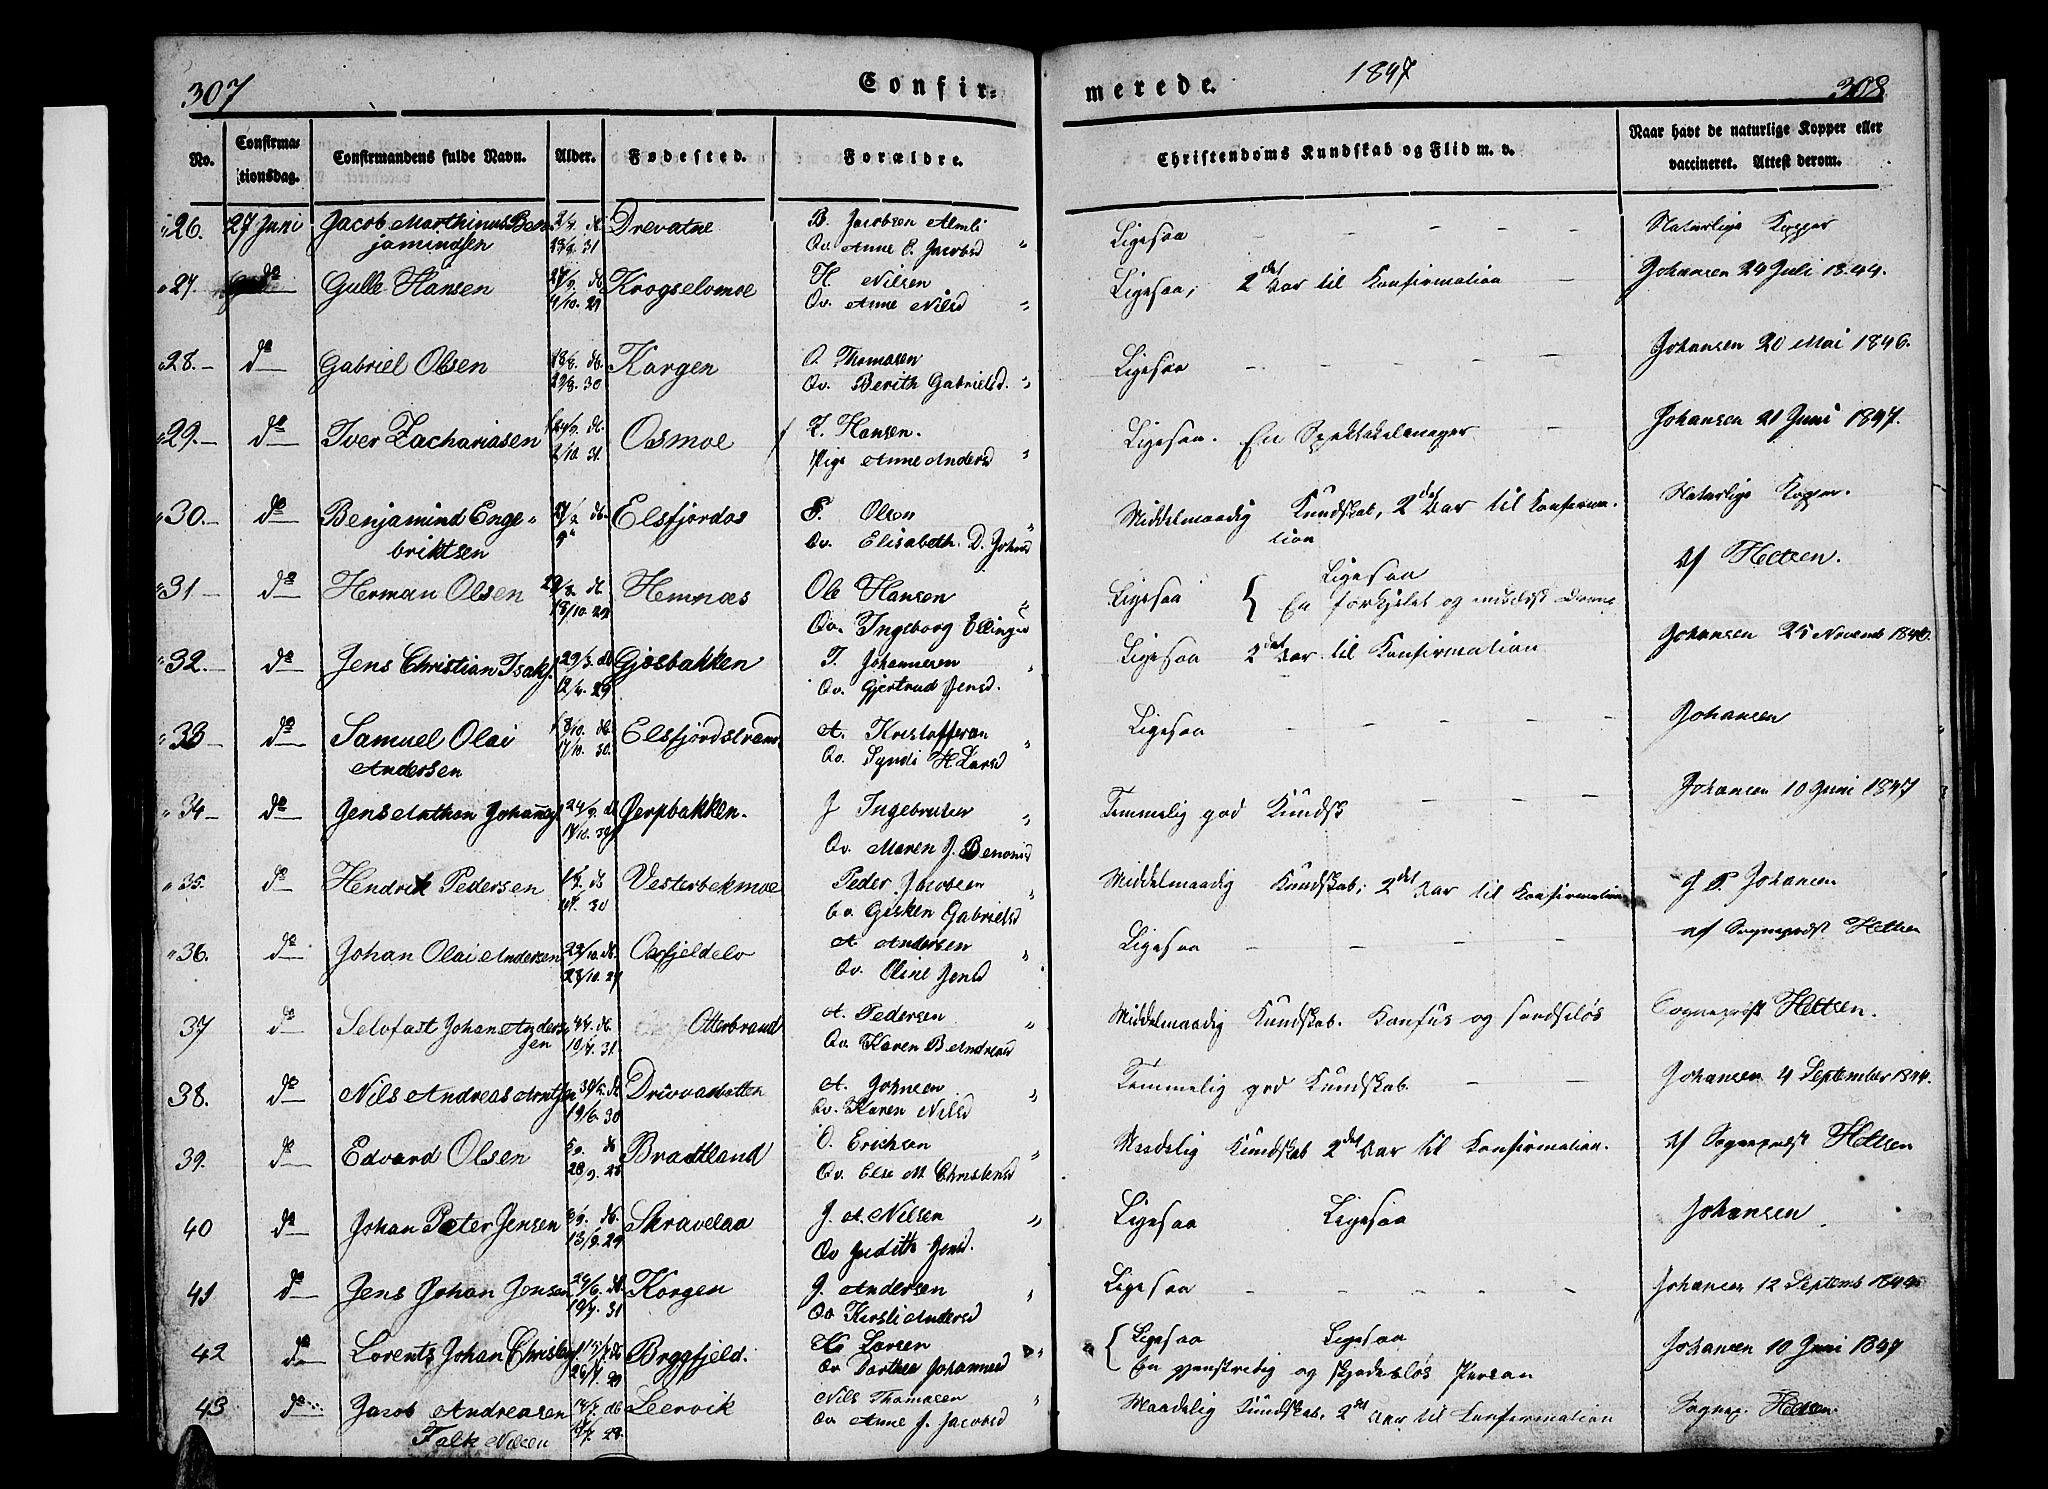 307
Confir-
merede.
1847
308
No.
Confirma-
tionsdag.
Confirmandens fulde Navn.
Alder.
Fødested.
Forældre.
Christendoms Kundskab og Flid m. v.
Naar havt de naturlige Kopper eller
vaccineret. Attest derom.
26. 27 Juni Jacob Marthinus Ben- Drevatne B. Jacobsen Almli Ligesaa - - - - Naturlige Kopper
jamindsen 31 Qv. Anne E. Jacobsd "
27. do Gulle Hansen Krogselvmoe H. Nilsen Ligesaa, 2det Aar til Konfirmation - Johansen 24 Juli 1844.
4/10. 29 Qv. Anne Nilsd "
28. - do Gabriel Olsen Korgen O. Thomasen Ligesaa - - - - Johansen 20 Mai 1846.
29/8. 30 Qv. Berith Gabrielsd. "
29. - do Iver Zachariasen Osmoe Z. Hansen. Ligesaa. En Spektakelmager Johansen 21 Juni 1847.
2/10. 31. Pige Anne Andersd "
30. - do Benjamind Enge- Elsfjordos E. Olsen Middelmaadig Kundskab, 2det Aar til Konfirma- Naturlige Kopper.
briktsen Qv. Elisabeth. D. Johnsd tion
31 - do Herman Olsen Hemnæs Ole Hansen Ligesaa { Ligesaa af Heltzen.
13/10. 29 Qv. Ingeborg Ellingsd En forkjelet og
32. - do Jens Christian Isaks. 29/3. do Gjøsbakken I. Johannesen Ligesaa 2det Aar til Konfirmation Johansen 25 Novemb 1846.
12/4. 29 Qv. Gjertrud Jensd. "
33 - do Samuel Olai Elsfjordstrand A. Kristoffersen Ligesaa - - - - Johansen
Andersen 17/10. 30. Qv. Syndi H. Larsd "
34 - do Jens Anthon Johans. 24/9. do Qerpbakken. J Ingebrigtsen Temmelig god Kundsk - - - Johansen 10 Juni 1847
Qv. Maren J. Benonisd
35. do Hendrik Pedersen Vesterbekmoe Peder Jacobsen Middelmaadig Kundskab, 2det Aar til Konfirmation J P Johansen
30 Qv. Gesken Gabrielsd
36. do Johan Olai Andersen Oxfjeldelv A Andersen Ligesaa - - - - af Sogneprest Heltzen
23/10. 27 Qv. Oline Jensd "
37 do Selvfast Johan Anders- Otterbrand A. Pedersen Middelmaadig Kundskab. Konfus og sandseløs Sogneprest Heltzen.
sen 31. Qv. Karen B. Andreasd
38. do Nils Andreas Arntsen Drivvasbotten A. Johnsen Temmelig god Kundskab - - Johansen 4 September 1844.
19/6. 30 Qv. Karen Nilsd "
39. do Edvard Olsen Bradtland O. Erichsen Maadelig Kundskab 2det Aar til Konfirmation. af Sogneprest Heltzen
28/9. 28 Qv. Else M Christensd
40 do Johan Peter Jensen Skravelaa J. A. Nilsen Ligesaa Ligesaa Johansen
13/9. 29 Qv Judith Jensd.
41 do Jens Johan Jensen 24/6. do Korgen J. Andersen Ligesaa - - - - Johansen 12 Septemb 1844
19/7. 31 Qv Kirsti Andersd
42 do Lorents Johan Christian Bryggfjeld. Hs Larsen { Ligesaa Ligesaa Johansen 10 Juni 1847
26/7. 29 Qv Dorthea Johannesd En gjenstridig og skjødesløs Person
43 do Jacob Andreasen Leervik Nils Thomasen Maadelig Kundskab. 2det Aar til Konfirmation Sognep. Heltzen
Falk Nilsen 28 Qv Anne J. Jacobsd